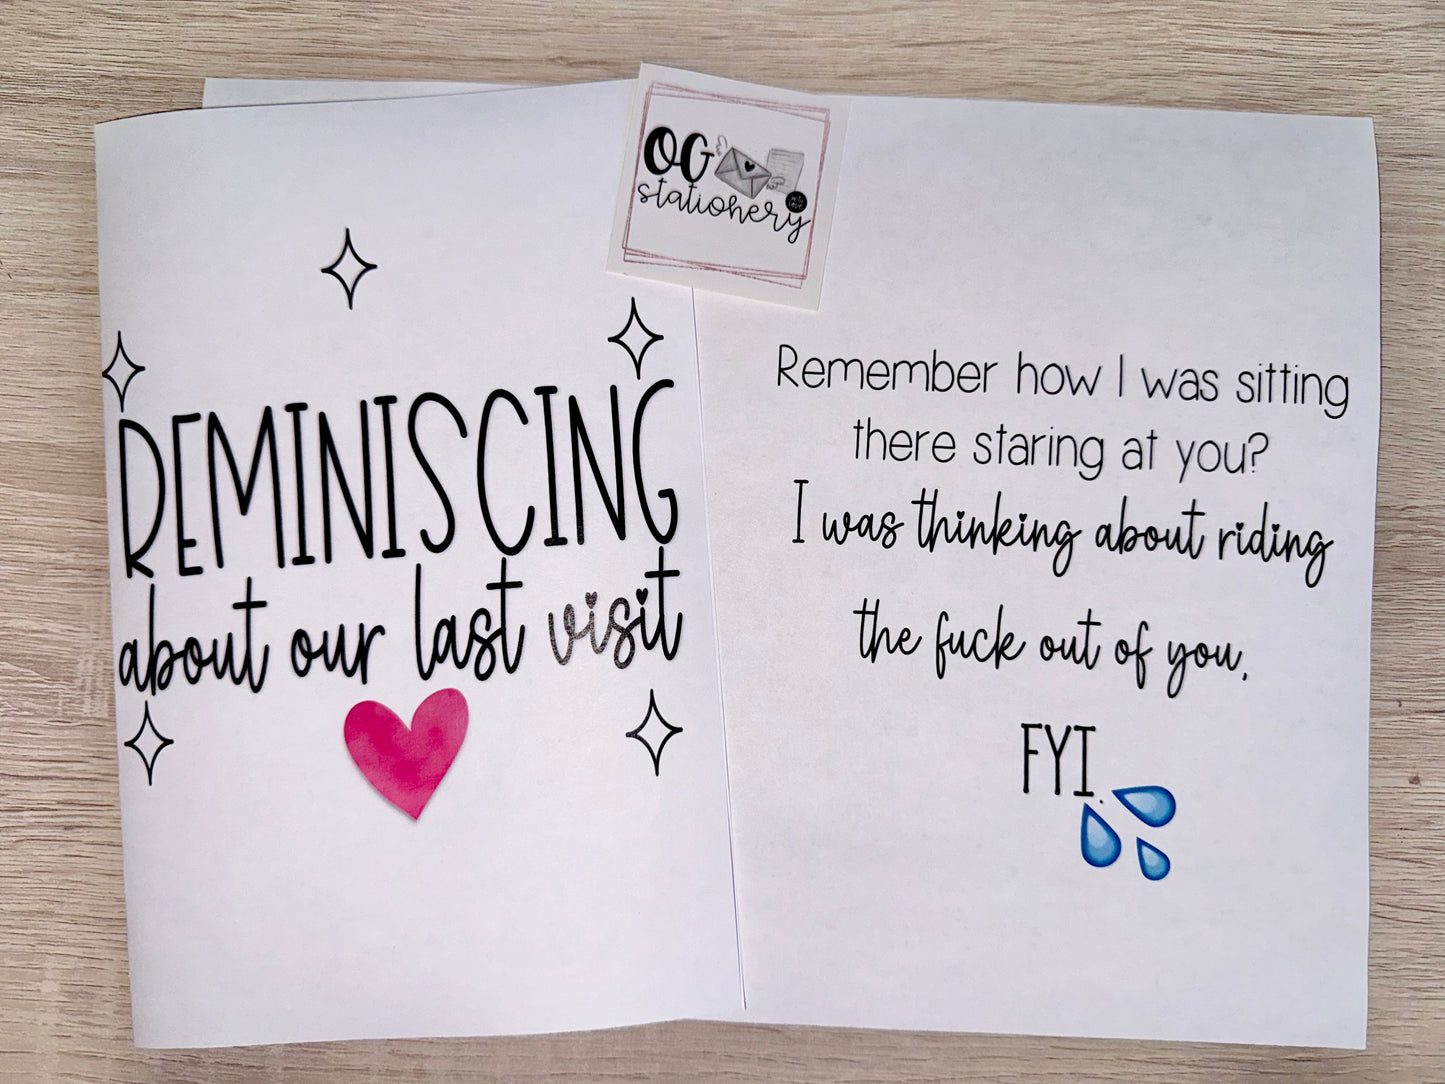 OG
stationery
REMINISCING
about our last visit
Remember how I was sitting
there staring at you?
I was thinking about riding
the fuck out of you,
FYI.